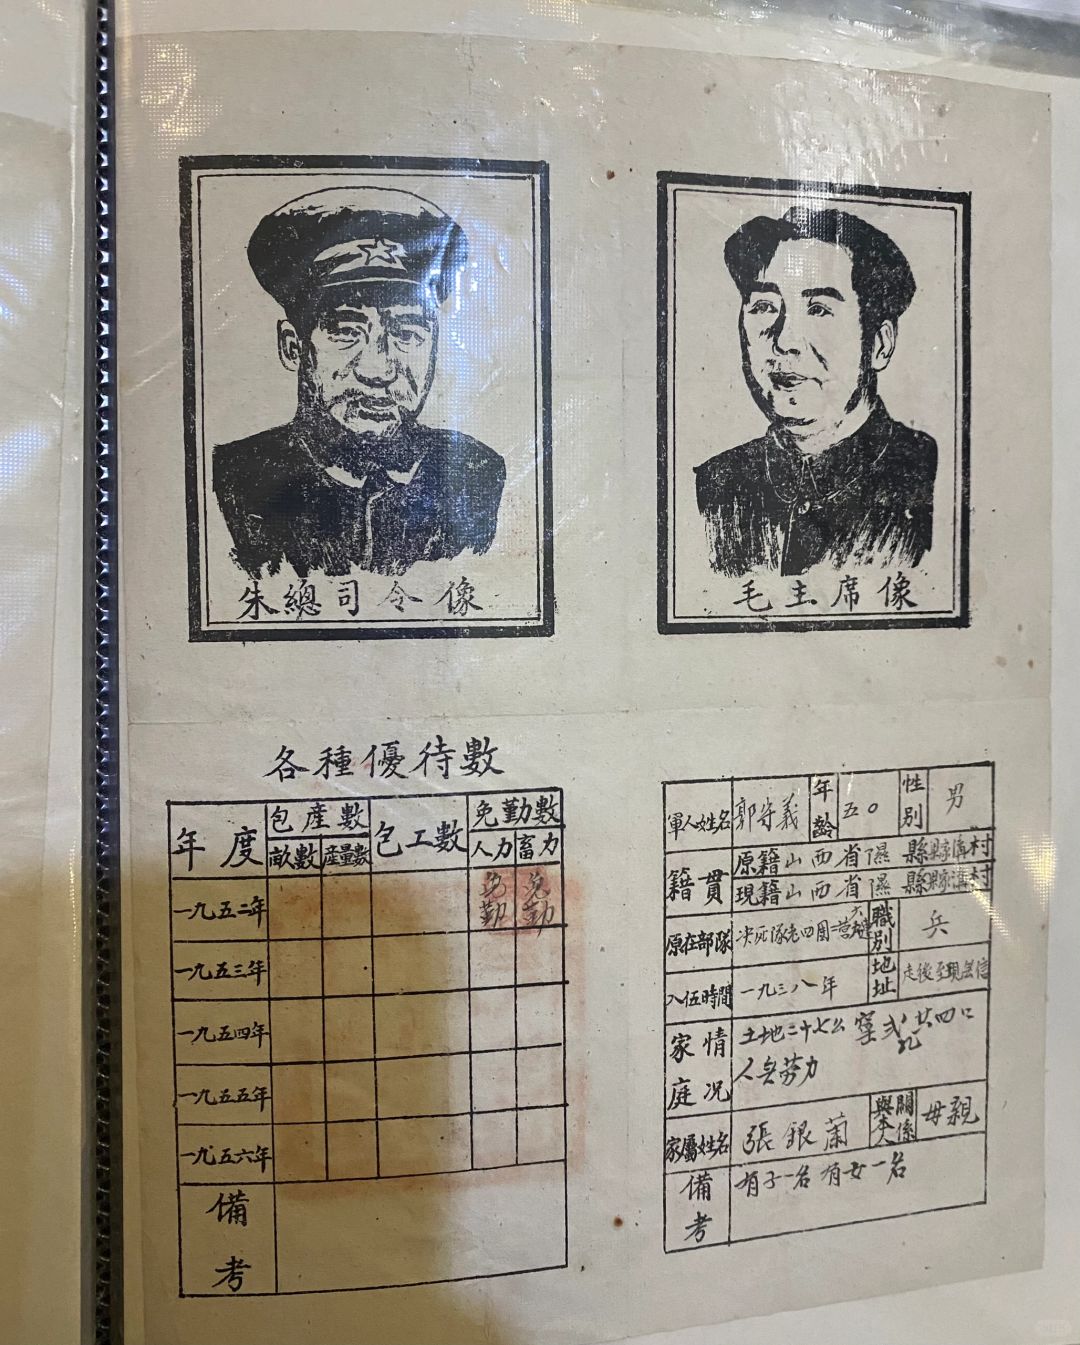 朱總司令像
毛主席像
各種優待數
年度 包產數 包工數 免勤數
畝數 產量數 人力 畜力
一九五二年 免勤 免勤
一九五三年
一九五四年
一九五五年
一九五六年
備考
軍人姓名 郭守義 年齡 五〇 性別 男
籍貫 原籍山西省隰縣 村
現籍山西省隰縣 村
原在部隊 决死隊老四團二營六連 職別 兵
入伍時間 一九三八年 地址 走後至現無信
家庭情况 土地二十七厶 窰弍孔 共四口
人無勞力
家屬姓名 張銀蘭 與本人關係 母親
備考 有子一名有女一名